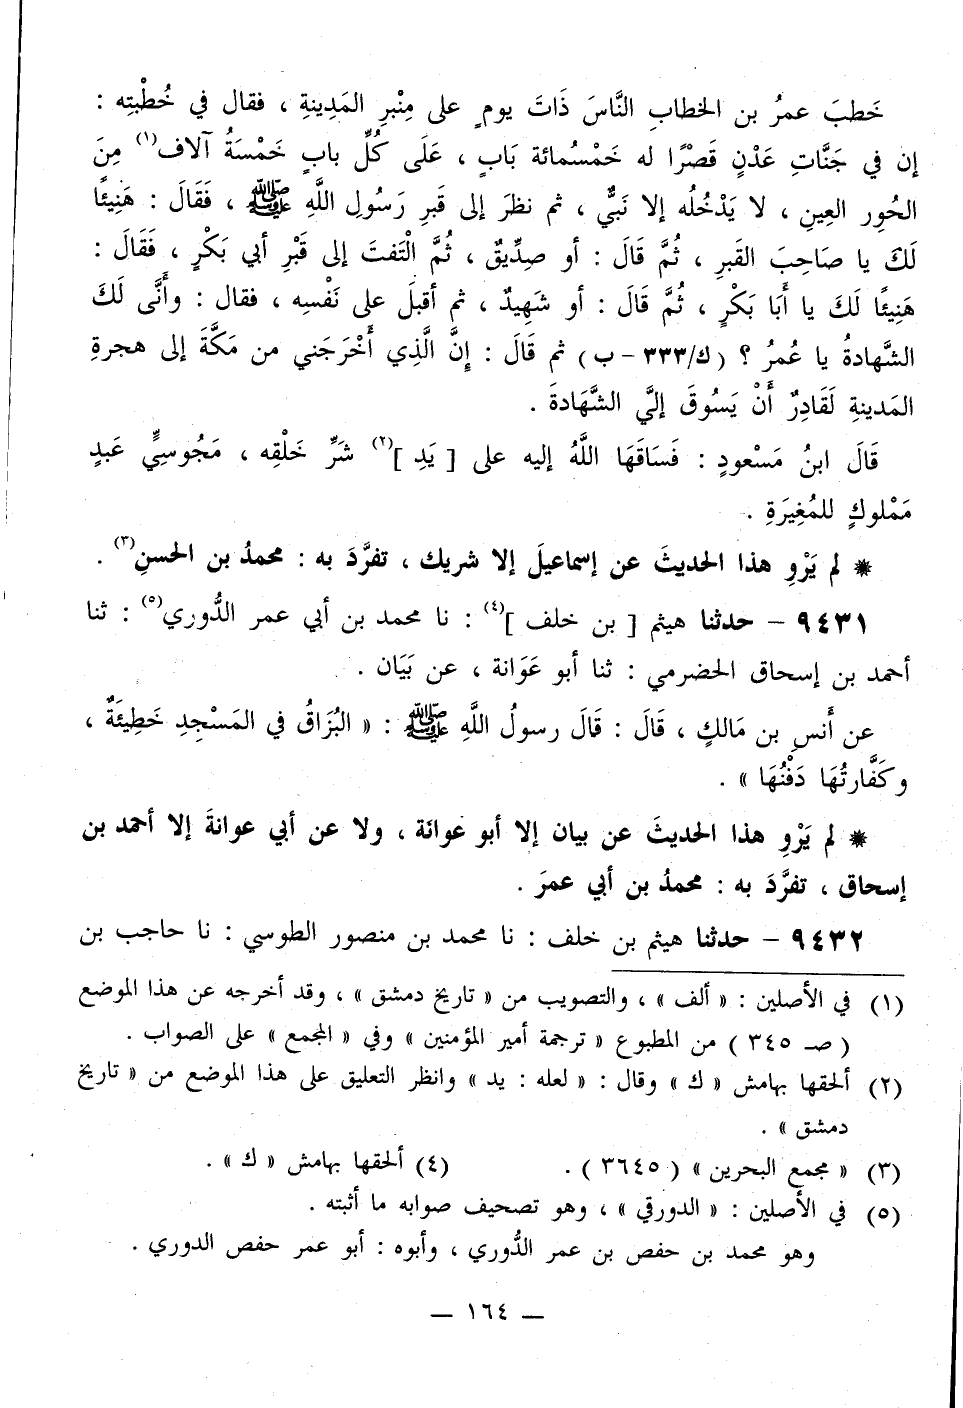 خَطبَ عمرُ بن الخطابِ النَّاسَ ذَاتَ يومٍ على مِنْبرِ المَدِينةِ ، فقال في خُطْبتِه :
إن في جَنَّاتِ عَدْنٍ قَصْرًا له خَمْسُمائة بَابٍ ، عَلَى كُلِّ بابٍ خَمْسَةُ آلاف(١) مِنَ
الحُورِ العِينِ ، لا يَدْخُلُه إلا نَبيٌّ ، ثم نظرَ إلى قَبرِ رَسُولِ اللَّهِ ﷺ ، فَقَالَ : هَنِيئًا
لَكَ يا صَاحِبَ القَبرِ ، ثُمَّ قَالَ : أو صِدِّيقٌ ، ثُمَّ الْتَفتَ إلى قَبْرِ أبي بَكْرٍ ، فَقَالَ :
هَنِيئًا لَكَ يا أَبَا بَكْرٍ ، ثُمَّ قَالَ : أو شَهِيدٌ ، ثم أقبلَ على نَفْسِه ، فقال : وأَنَّى لَكَ
الشَّهادةُ يا عُمرُ ؟ ( ك/٣٣٣ - ب ) ثم قَالَ : إنَّ الَّذِي أَخْرَجَني من مَكَّةَ إلى هجرةِ
المَدينةِ لَقَادِرٌ أَنْ يَسُوقَ إليَّ الشَّهَادةَ .
قَالَ ابنُ مَسْعودٍ : فَسَاقَهَا اللَّهُ إليه على [ يَدِ ](٢) شَرِّ خَلْقِه ، مَجُوسِيٍّ عَبدٍ
مَمْلوكٍ للمُغِيرَةِ .
* لم يَرْوِ هذا الحديثَ عن إسماعيلَ إلا شريك ، تفرَّدَ به : محمدُ بن الحسنِ(٣) .
٩٤٣١ - حدثنا هيثم [ بن خلف ](٤) : نا محمد بن أبي عمر الدُّوري(٥) : ثنا
أحمد بن إسحاق الحضرمي : ثنا أبو عَوَانة ، عن بَيَان .
عن أَنسِ بن مَالكٍ ، قَالَ : قَالَ رسولُ اللَّهِ ﷺ : « البُزَاقُ في المَسْجِدِ خَطِيئَةٌ ،
وكَفَّارتُهَا دَفْنُهَا » .
* لم يَرْوِ هذا الحديثَ عن بيان إلا أبو عوانَة ، ولا عن أبي عوانةَ إلا أحمد بن
إسحاق ، تفرَّدَ به : محمدُ بن أبي عمرَ .
٩٤٣٢ - حدثنا هيثم بن خلف : نا محمد بن منصور الطوسي : نا حاجب بن
(١) في الأصلين : « ألف » ، والتصويب من « تاريخ دمشق » ، وقد أخرجه عن هذا الموضع
( صـ ٣٤٥ ) من المطبوع « ترجمة أمير المؤمنين » وفي « المجمع » على الصواب .
(٢) ألحقها بهامش « ك » وقال : « لعله : يد » وانظر التعليق على هذا الموضع من « تاريخ
دمشق » .
(٣) « مجمع البحرين » ( ٣٦٤٥ ) . (٤) ألحقها بهامش « ك » .
(٥) في الأصلين : « الدورقي » ، وهو تصحيف صوابه ما أثبته .
وهو محمد بن حفص بن عمر الدُّوري ، وأبوه : أبو عمر حفص الدوري .
— ١٦٤ —